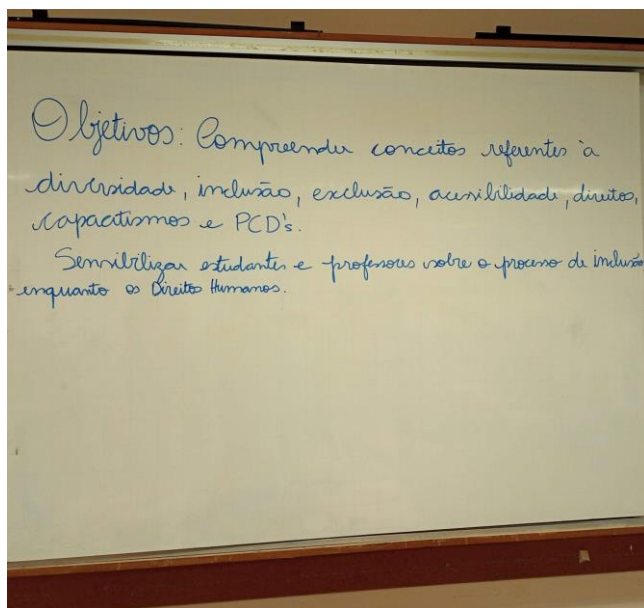 Objetivos: Compreender conceitos referentes à
diversidade, inclusão, exclusão, acessibilidade, direitos,
capacitismos e PCD's.
Sensibilizar estudantes e professores sobre o processo de inclusão
enquanto os Direitos Humanos.